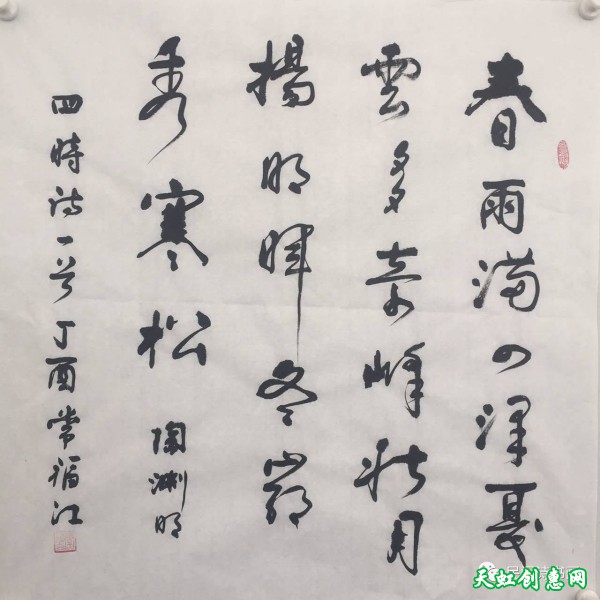 春雨满四泽夏
雲多奇峰秋月
揚明晖冬嶺
秀寒松 陶渊明
四時诗一首丁酉常福江
天虹创惠网